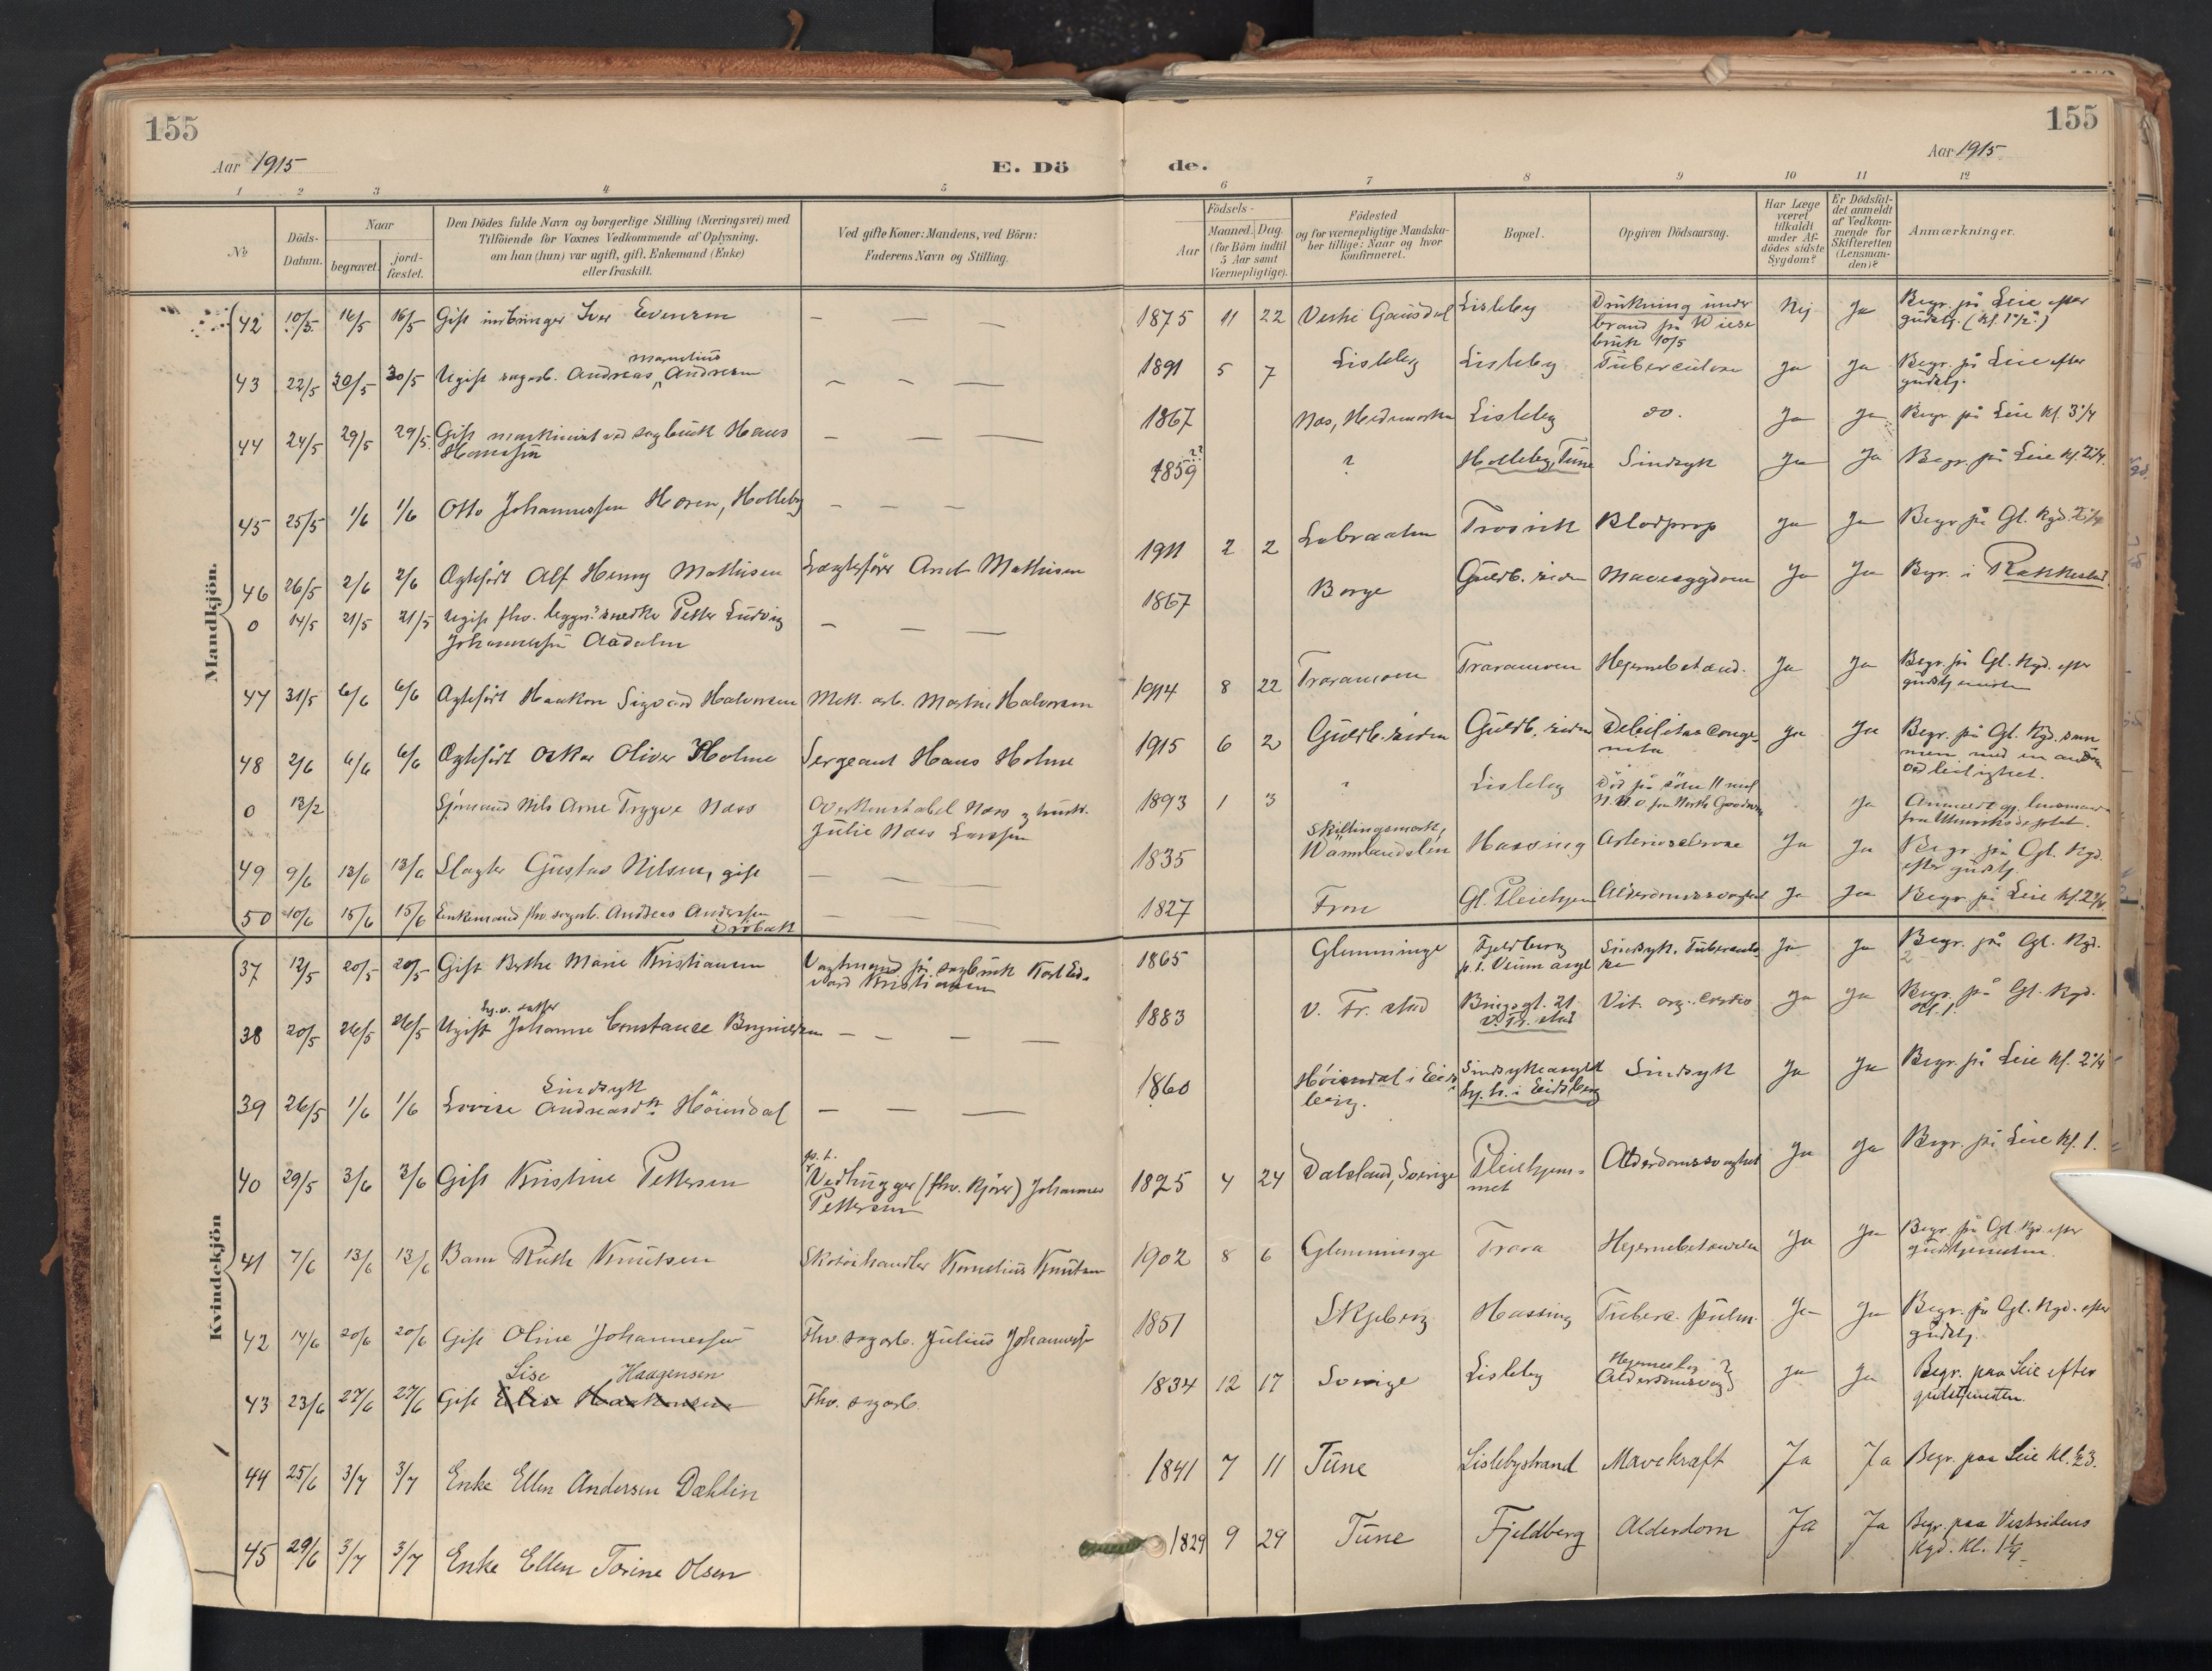 155
155
Aar 1915
E. Dö
de.
Aar 1915
1 2 3 4 5 6 7 8 9 10 11 12
No
Döds-
Datum.
Naar
begravet.
jord-
fæstet.
Den Dödes fulde Navn og borgerlige Stilling (Næringsvei) med
Tilföiende for Voxnes Vedkommende af Oplysning,
om han (hun) var ugift, gift, Enkemand (Enke)
eller fraskilt.
Ved gifte Koner: Mandens, ved Börn:
Faderens Navn og Stilling.
Födsels-
Aar
Maaned. Dag.
(for Börn indtil
5 Aar samt
Værnepligtige).
Födested
og for værnepligtige Mandska-
ber tillige: Naar og hvor
konfirmeret.
Bopæl.
Opgiven Dödsaarsag.
Har Læge
været
tilkaldt
under Af-
dödes sidste
Sygdom?
Er Dödsfal-
det anmeldt
af Vedkom-
mende for
Skifteretten
(Lensman-
den)?
Anmærkninger.
Mandkjön.
42 10/5 16/5 16/5 Gift Iver Evensen — — —
1875 11 22 Vestre Gausdal Lisleby Drukning under Nej Ja Begr. på Leie efter
brand på Wiese
gudstj. (kl. 1½)
bruk 10/5
Magnelius
43 22/5 30/5 30/5 Ugift sagarb. Andreas Andresen — — —
1891 5 7 Lisleby Lisleby Tuberculose Ja Ja Begr. på Leie efter
gudstj.
44 24/5 29/5 29/5 Gift maskinist ved sagbruk Hans — — —
Hansen
1867 Nes, Hedemarken Lisleby do. Ja Ja Begr. på Leie kl. 3¼
45 25/5 1/6 1/6 Otto Johannessen Horen, Holleby — — —
1859 ?? ? Holleby, Tune Sindsyk Ja Ja Begr. på Leie kl. 2¼.
46 26/5 2/6 2/6 Ægtefödt Alf Henry Mathisen Lægtefører Mathisen
1911 2 2 Labraaten Trosvik Blodprop Ja Ja Begr. på Gl. Kgd. 2¼
0 14/5 21/5 21/5 Ugift fhv. snedker Petter Ludvig — — —
Johannessen Aadalen
1867 Borge Guldb. siden Mavesygdom Ja Ja Begr. i Rakkestad.
47 31/5 6/6 6/6 Ægtefödt Haakon Sigvard Halvorsen Mek. arb. Martin Halvorsen
1914 8 22 Traramoen Traramoen Hjernebetænd. Ja Ja Begr. på Gl. Kgd. efter
gudstjenesten
48 2/6 6/6 6/6 Ægtefödt Oskar Oliver Holme Sergeant Hans Holme
1915 6 2 Guldb. siden Guldb. siden Debilitas conge- Ja Ja Begr. på Gl. Kgd. sam
nita
men med en anden
ved leilighet.
0 13/2 Sjömand Nils Arne Trygve Næss Overkonstabel Næss og hustr.
Julie Næss Larssen
1893 1 3 Lisleby Död på sjöen 11 mil Ja
N.N.O fra North Goodwin
49 9/6 13/6 13/6 Slagter Gustav Nilsen, gift — — —
1835 Skillingsmark,
Värmlandslän Hassing Arteriosclerose Ja Ja Begr. på Gl. Kgd.
efter gudstj.
50 10/6 15/6 15/6 Enkemand fhv. sagarb. Andreas Andersen — —
Dröbak
1827 Fron Gl. Pleiehjem Alderdomssvaghet Ja Ja Begr. på Leie kl. 2¼.
Kvindekjön
37 12/5 20/5 20/5 Gift Berthe Marie Kristiansen Vagtmand på sagbruk Karl Ed-
vard Kristiansen
1865 Glemminge Fjeldberg Sindsyk. Tuberculo Ja Ja Begr. på Gl. Kgd.
p.t. Veum asyl se 2
38 20/5 26/5 26/5 Ugift Johanne Constance — — —
1883 V. Fr. stad 21 Vit. org. cordis Ja Ja Begr. på Gl. Kgd.
V. Fr. stad kl. 1.
Sindsyk
39 26/5 1/6 1/6 Lovise Andreasdtr. Höiendal — — —
1860 Höiendal i Eids Sindsykeasylet Sindsyk Ja Ja Begr. på Leie kl. 2¼
berg. i Eidsberg
p.t.
40 29/5 3/6 3/6 Gift Kristine Pettersen Vedhugger (fhv. kjörer) Johannes
Pettersen
1825 4 24 Dalsland, Sverige Pleiehjem- Alderdomssvaghet Ja Ja Begr. på Leie kl. 1.
met
41 7/6 13/6 13/6 Barn Ruth Knutsen Skotöihandler Kornelius Knutsen
1902 8 6 Glemminge Trara Hjernebetændelse Ja Ja Begr. på Gl. Kgd efter
gudstjenesten.
42 14/6 20/6 20/6 Gift Oline Johannessen Fhv. sagarb. Julius Johannessen
1851 Skjeberg Hassing Tuberc. pulm. Ja Ja Begr. på Gl. Kgd. efter
gudstj.
Lise Haagensen
43 23/6 27/6 27/6 Gift Elise Haakensen Fhv. sagarb.
1834 12 17 Sverige Lisleby Alderdomssvagh. Ja Ja Begr. paa Leie efter
gudstjenesten.
44 25/6 3/7 3/7 Enke Ellen Andersen Dæhlin
1841 7 11 Tune Lislebystrand Mavekræft Ja Ja Begr. paa Leie kl. ½3.
45 29/6 3/7 3/7 Enke Ellen Torine Olsen
1829 9 29 Tune Fjeldberg Alderdom Ja Ja Begr. paa Vestsidens
Kgd. kl. 1¼